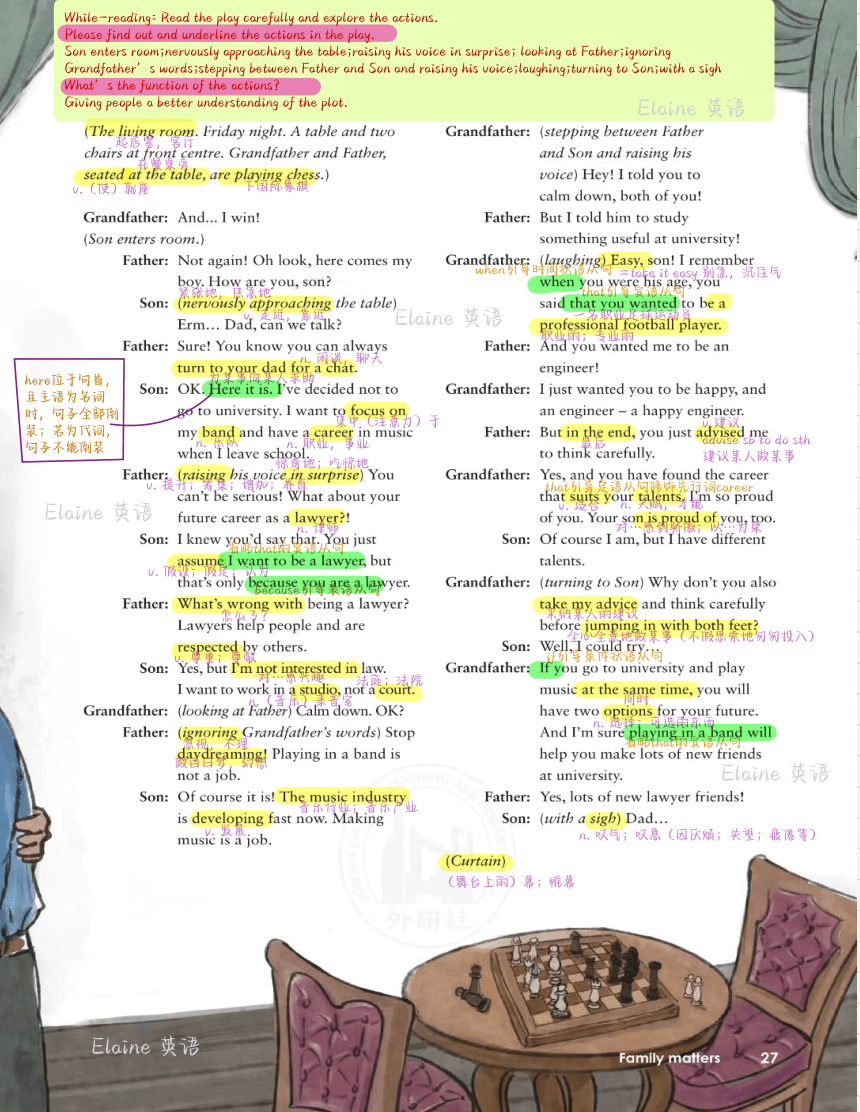 While-reading: Read the play carefully and explore the actions.
Please find out and underline the actions in the play.
Son enters room;nervously approaching the table;raising his voice in surprise; looking at Father;ignoring
Grandfather's words;stepping between Father and Son and raising his voice;laughing;turning to Son;with a sigh
What's the function of the actions?
Giving people a better understanding of the plot.
Elaine 英语
(The living room. Friday night. A table and two
起居室，客厅
chairs at front centre. Grandfather and Father,
在餐桌旁
seated at the table, are playing chess.)
v.（使）就座
下国际象棋
Grandfather: And... I win!
(Son enters room.)
Father: Not again! Oh look, here comes my
boy. How are you, son?
紧张地，焦急地
Son: (nervously approaching the table)
v. 走近，靠近
Erm… Dad, can we talk?
Father: Sure! You know you can always
n. 闲谈，聊天
turn to your dad for a chat.
为某事向某人求助
Son: OK. Here it is. I've decided not to
go to university. I want to focus on
集中（注意力）于
my band and have a career in music
n. 乐队
n. 职业，事业
when I leave school.
惊奇地；吃惊地
Father: (raising his voice in surprise) You
v. 提升；筹集；增加；养育
can't be serious! What about your
future career as a lawyer?!
n. 律师
Son: I knew you'd say that. You just
省略that的宾语从句
assume I want to be a lawyer, but
v. 假设；假定；认为
that's only because you are a lawyer.
because引导表语从句
Father: What's wrong with being a lawyer?
怎么了？
Lawyers help people and are
respected by others.
v. 尊重；尊敬
Son: Yes, but I'm not interested in law.
对…感兴趣
法庭；法院
I want to work in a studio, not a court.
n.（音乐）录音室
Grandfather: (looking at Father) Calm down. OK?
Father: (ignoring Grandfather's words) Stop
忽视，不理
daydreaming! Playing in a band is
做白日梦，幻想
not a job.
Son: Of course it is! The music industry
音乐行业；音乐产业
is developing fast now. Making
v. 发展
music is a job.
here位于句首，
且主语为名词
时，句子全部倒
装；若为代词，
句子不能倒装
Elaine 英语
Elaine 英语
Grandfather: (stepping between Father
and Son and raising his
voice) Hey! I told you to
calm down, both of you!
Father: But I told him to study
something useful at university!
Grandfather: (laughing) Easy, son! I remember
when引导时间状语从句
=take it easy 别急，沉住气
when you were his age, you
that引导宾语从句
said that you wanted to be a
一名职业足球运动员
professional football player.
职业的；专业的
Father: And you wanted me to be an
engineer!
Grandfather: I just wanted you to be happy, and
an engineer – a happy engineer.
v.建议
Father: But in the end, you just advised me
最后
advise sb to do sth
to think carefully.
建议某人做某事
Grandfather: Yes, and you have found the career
that引导定语从句修饰先行词career
that suits your talents. I'm so proud
v. 适合
n. 天赋，才能
of you. Your son is proud of you, too.
对…感到骄傲；以…为荣
Son: Of course I am, but I have different
talents.
Grandfather: (turning to Son) Why don't you also
take my advice and think carefully
采纳某人的建议
before jumping in with both feet?
全心全意地做某事（不假思索地匆匆投入）
Son: Well, I could try…
if引导条件状语从句
Grandfather: If you go to university and play
music at the same time, you will
同时
have two options for your future.
n. 选择；可选的东西
And I'm sure playing in a band will
省略that的宾语从句
help you make lots of new friends
at university.
Elaine 英语
Father: Yes, lots of new lawyer friends!
Son: (with a sigh) Dad…
n. 叹气；叹息（因厌烦；失望；疲倦等）
(Curtain)
（舞台上的）幕；帷幕
外研社
Elaine 英语
Family matters 27